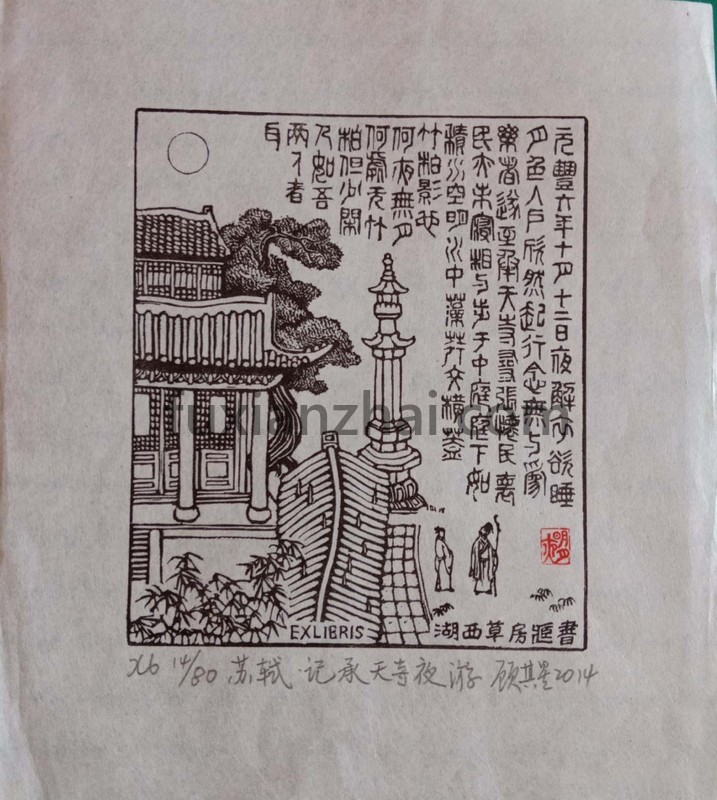 元豐六年十月十二日夜解衣欲睡
月色入戶欣然起行念無与爲
樂者遂至承天寺尋張懷民褱
民亦未寢相与步于中庭庭下如
積水空明水中藻荇交橫蓋
竹柏影也
何夜無月
何處无竹
柏但少閑
人如吾
兩人者
耳
fuxianzhai.com
EXLIBRIS
湖西草房藏書
X6 14/80 苏轼·记承天寺夜游 顾其星2014